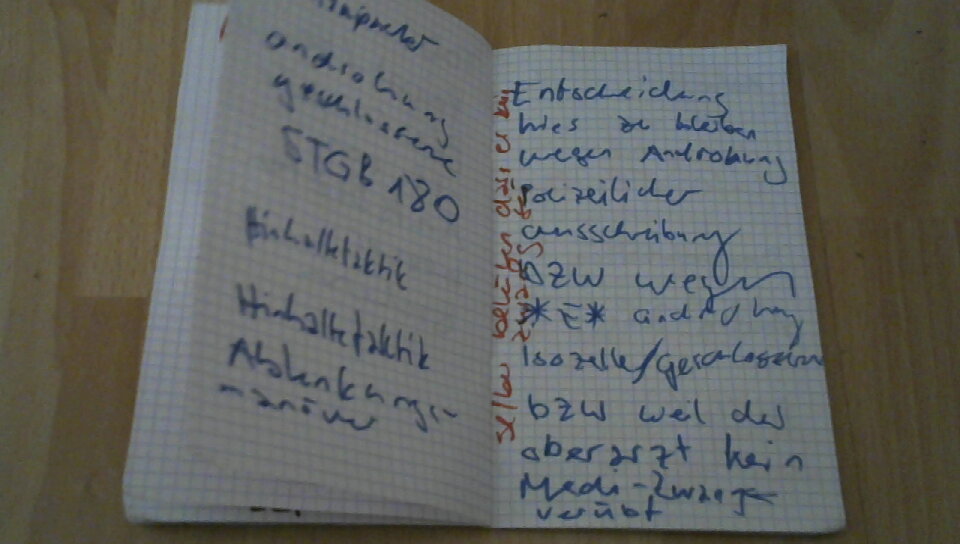 androhung
geschlossene
STGB 180
Hinhaltetaktik
Hinhaltetaktik
Ablenkungs-
manöver
Entscheidung
hies zu bleiben
wegen Androhung
polizeilicher
ausschreibung
bzw wegen
*E* androhung
Isozelle/geschlossene
bzw weil der
oberarzt kein
Medi-Zwang
verübt